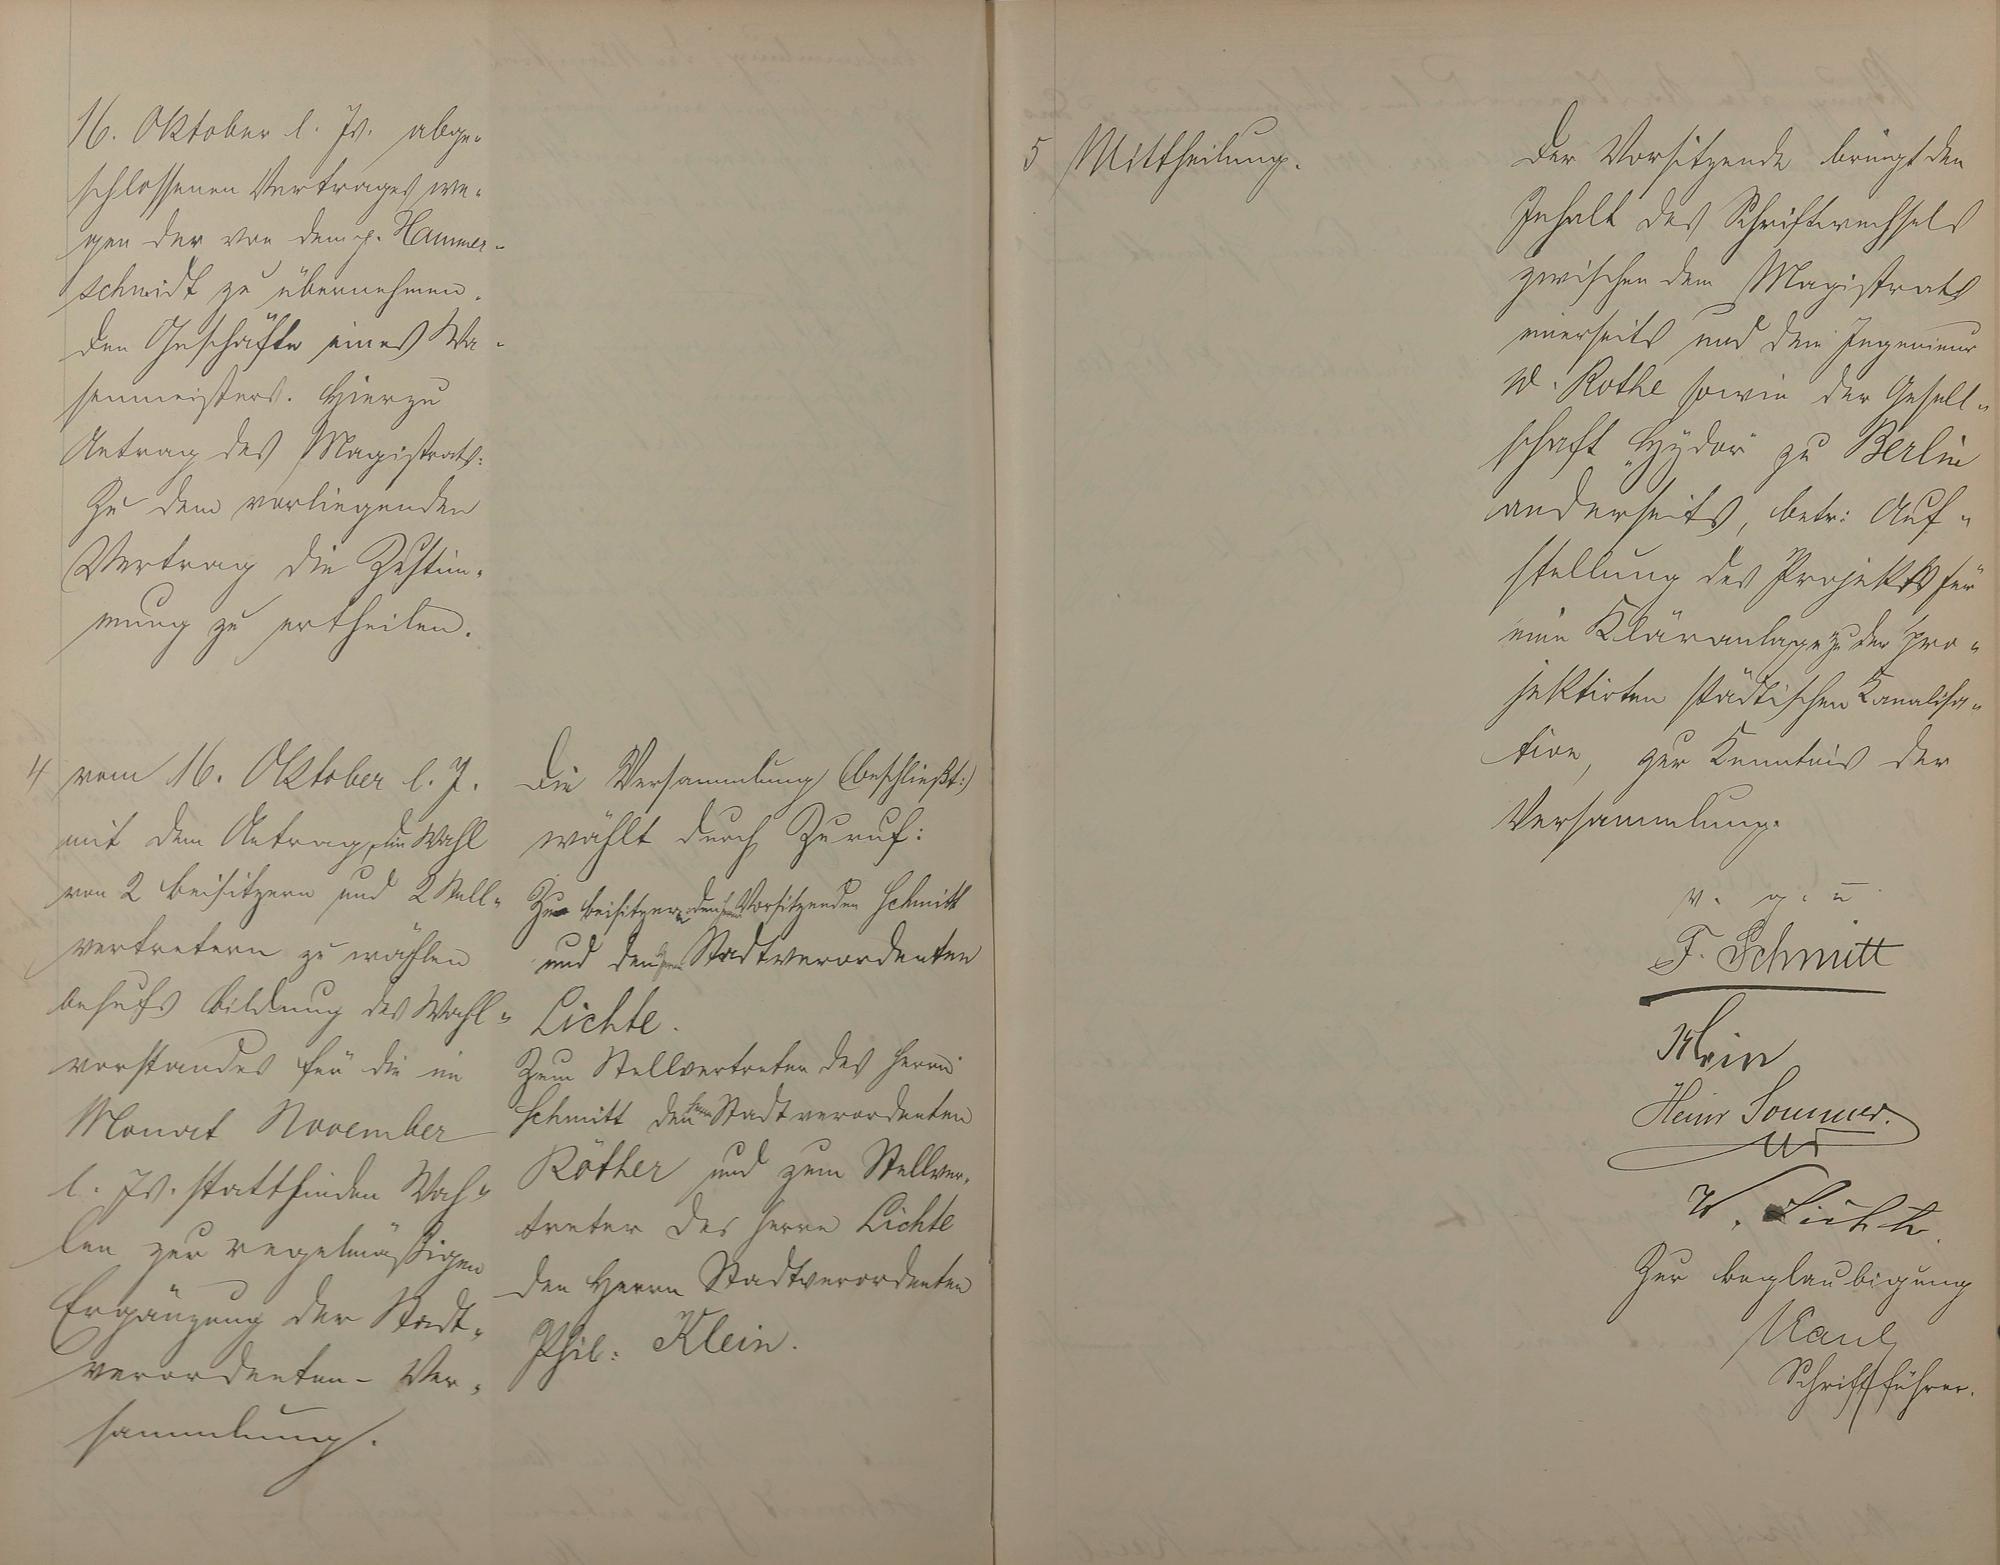 16. Oktober l. Js. abge-
schlossenen Vertrages we-
gen der von dem p. Hammer-
schmidt zu übernehmen-
den Geschäfte eines Wa-
senmeisters. Hierzu
Antrag des Magistrats:
Zu dem vorliegenden
Vertrag die Zustim-
mung zu ertheilen.
4 vom 16. Oktober l. J.
mit dem Antrag, die Wahl
von 2 Beisitzern und 2 Stell-
vertretern zu wählen
behufs Bildung des Wahl-
vorstandes für die im
Monat November
l. Js. stattfinden Wah-
len zur regelmäßigen
Ergänzung der Stadt-
verordneten-Ver-
sammlung.
Die Versammlung (beschließt:)
wählt durch Zuruf:
Zu Beisitzern den Herrn Vorsitzenden Schmitt
und den Herrn Stadtverordneten
Lichte.
Zum Stellvertreter des Herrn
Schmitt den Herrn Stadtverordneten
Röther und zum Stellver-
treter des Herrn Lichte
den Herrn Stadtverordneten
Phil: Klein.
5 Mittheilung.
Der Vorsitzende bringt den
Inhalt des Schriftwechsels
zwischen dem Magistrats
einerseits und dem Ingenieur
W. Rothe sowie der Gesell-
schaft "Hydor" zu Berlin
anderseits, betr: Auf-
stellung des Projekts für
eine Kläranlage zu der pro-
jektirten städtischen Kanalisa-
tion, zur Kenntnis der
Versammlung.
v. g. u.
F. Schmitt
Klein
Heinr Sommer.
W. Lichte.
Zur Beglaubigung
Kaul
Schriftführer.